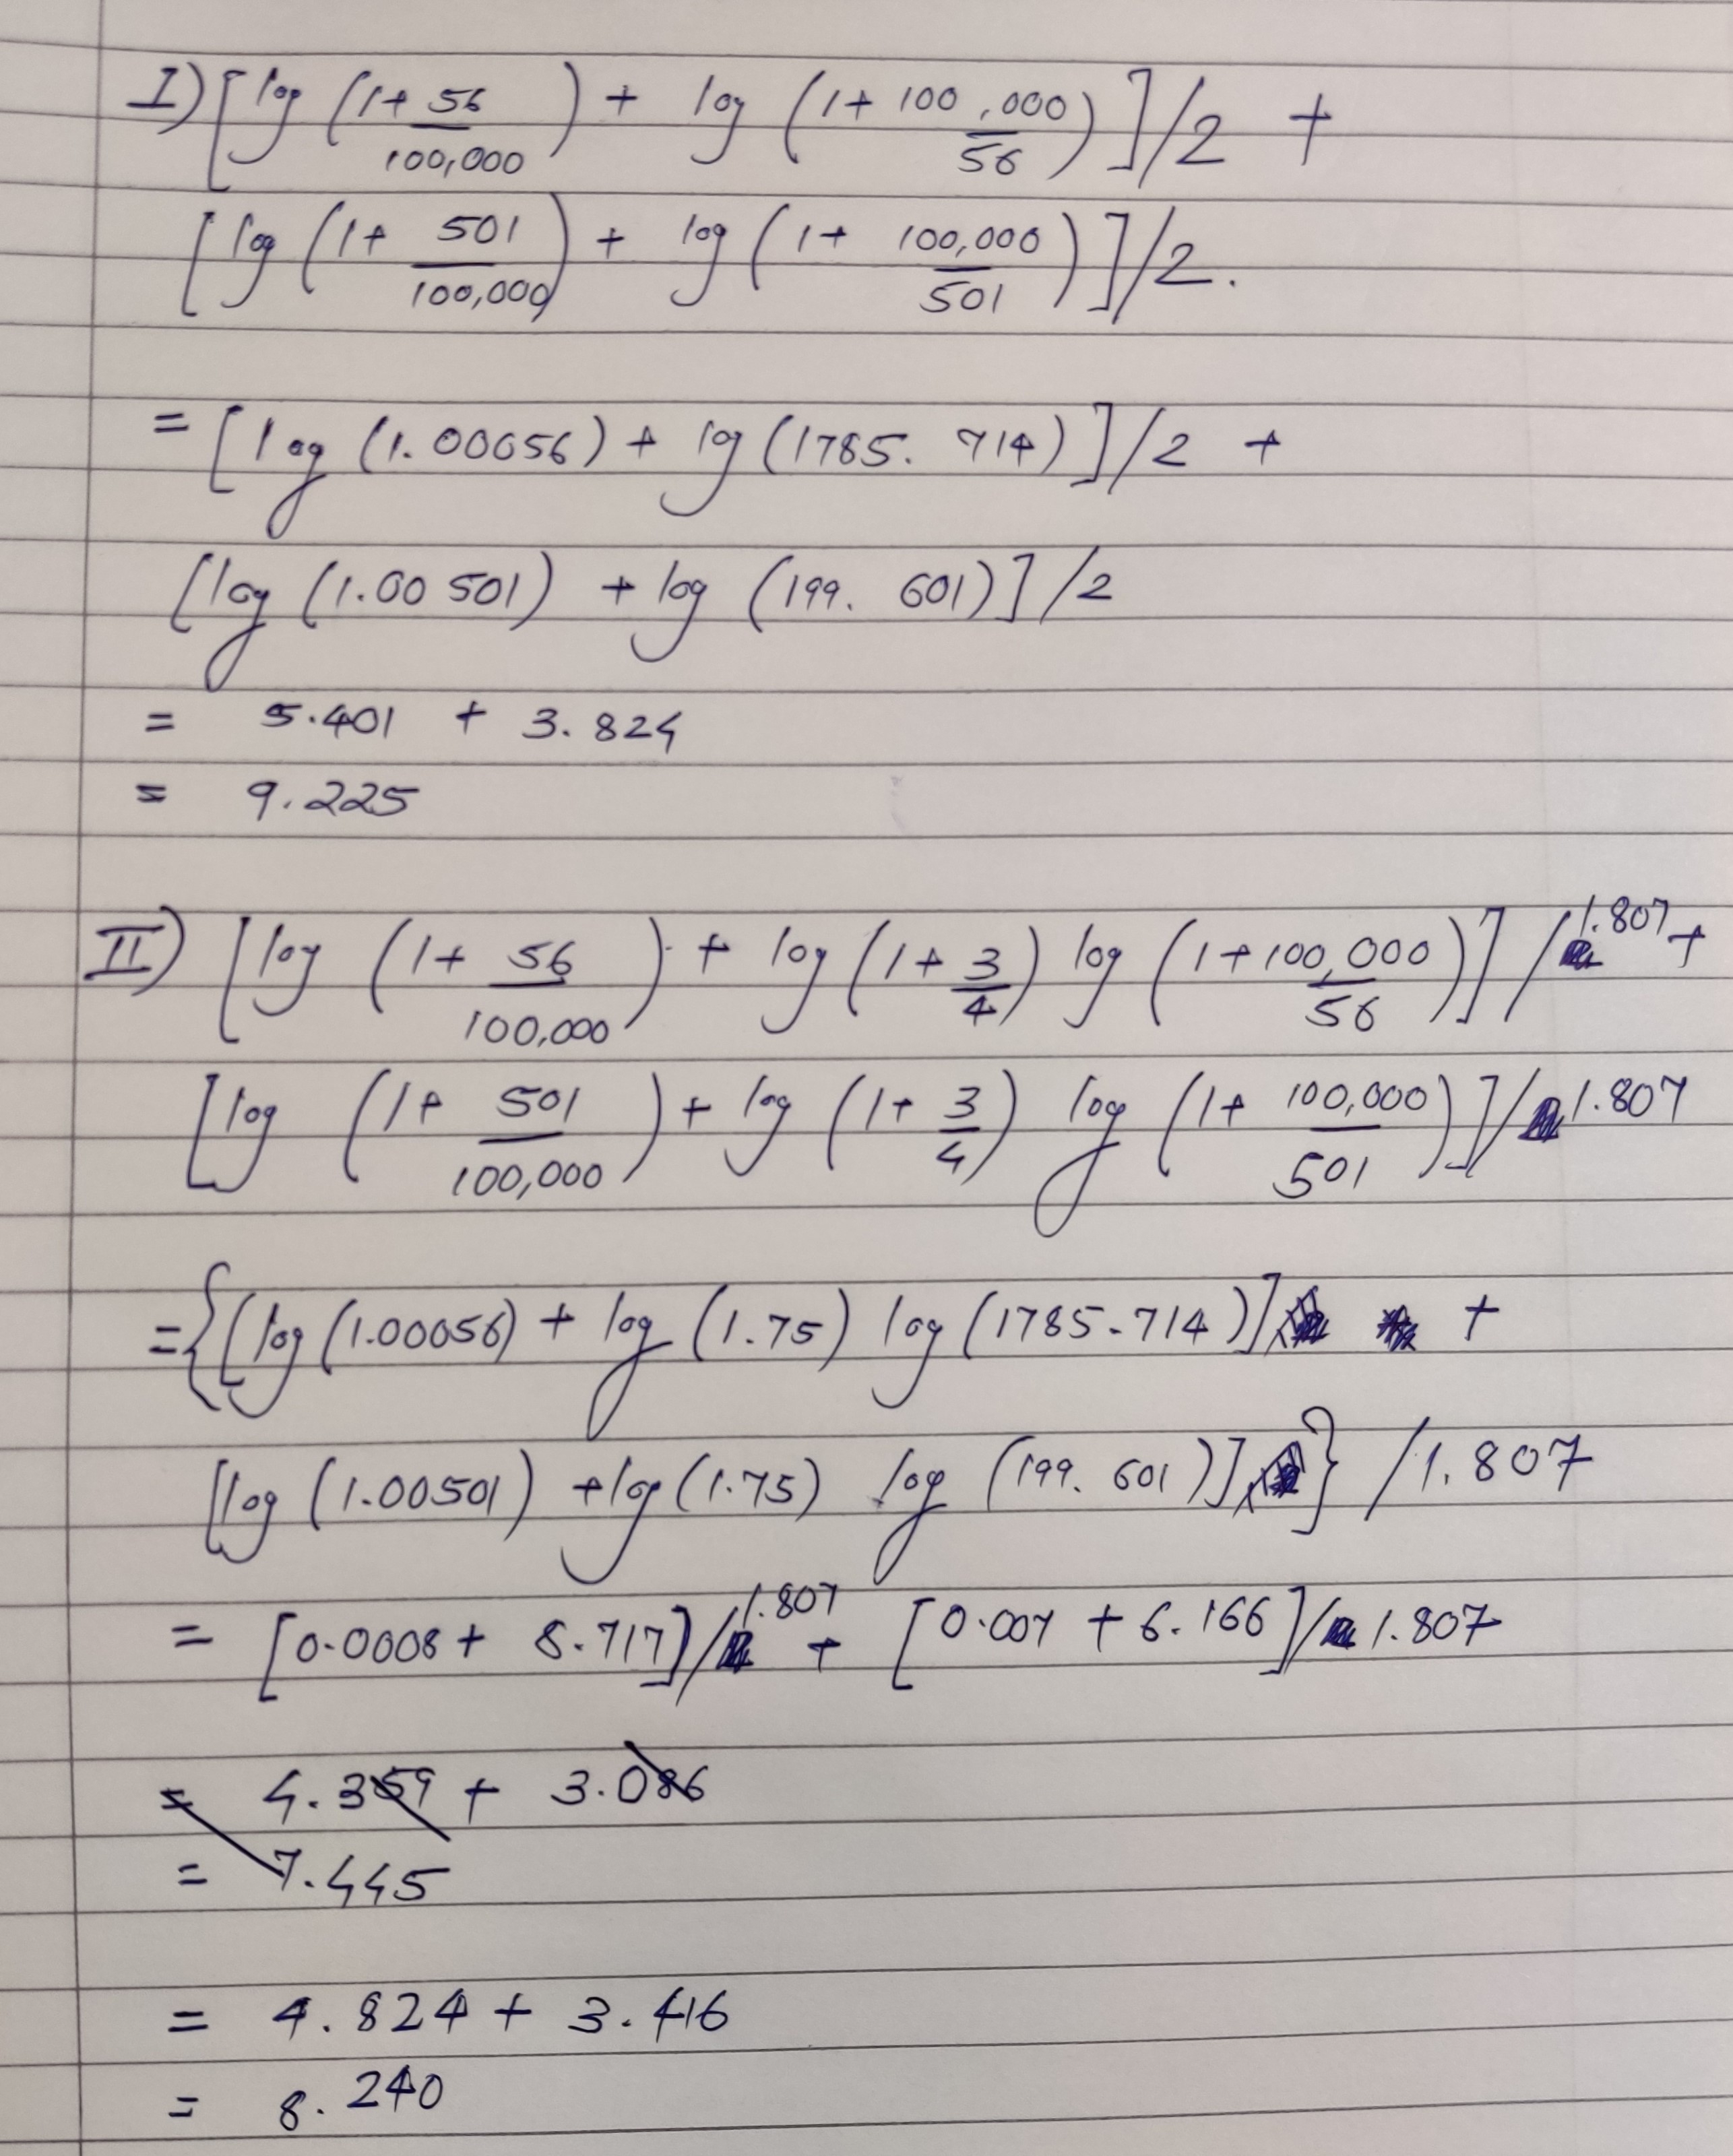 I) [log (1 + 56/100,000) + log (1 + 100,000/56)]/2 +
[log (1 + 501/100,000) + log (1 + 100,000/501)]/2.
= [log (1.00056) + log (1785.714)]/2 +
[log (1.00501) + log (199.601)]/2
= 5.401 + 3.824
= 9.225
II) [log (1 + 56/100,000) + log (1 + 3/4) log (1 + 100,000/56)]/1.807 +
[log (1 + 501/100,000) + log (1 + 3/4) log (1 + 100,000/501)]/1.807
= {[log (1.00056) + log (1.75) log (1785.714)] +
[log (1.00501) + log (1.75) log (199.601)]} /1.807
= [0.0008 + 8.717]/1.807 + [0.007 + 6.166]/1.807
= 4.359 + 3.086
= 7.445
= 4.824 + 3.416
= 8.240